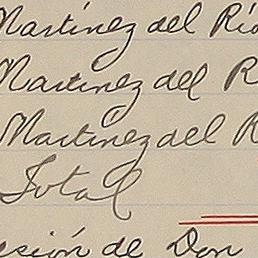 Martínez del Río
Martínez del R
Martínez del R
Total
esión de Don